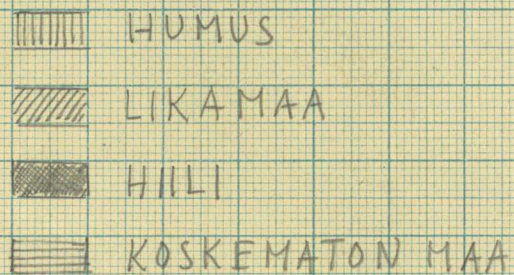 HUMUS
LIKAMAA
HIILI
KOSKEMATON MAA